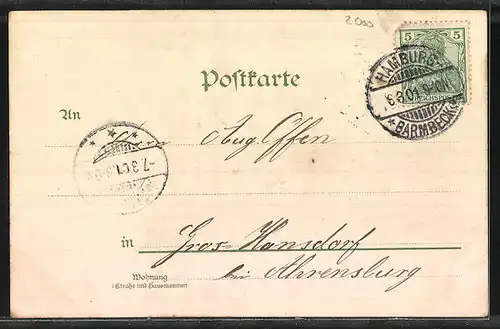 2000
5 5
REICHSPOST
HAMBURG
6.3.01. 9-10N.
* BARMBECK
Postkarte
An Aug. Offen
7.3.01.
in Gros-Hansdorf
bei Ahrensburg
Wohnung
(Straße und Hausnummer)